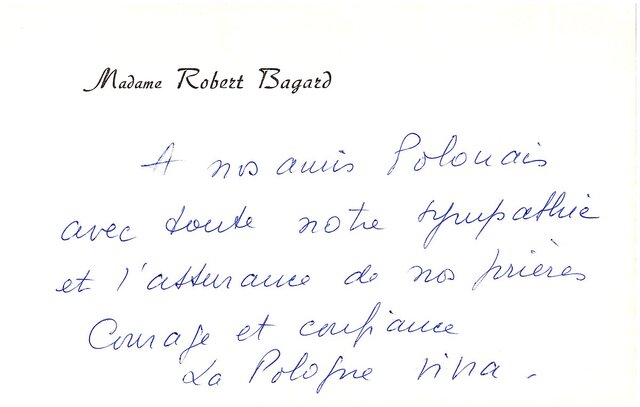 Madame Robert Bagard
A nos amis Polonais
avec toute notre sympathie
et l'assurance de nos prières
Courage et confiance
La Pologne vivra.